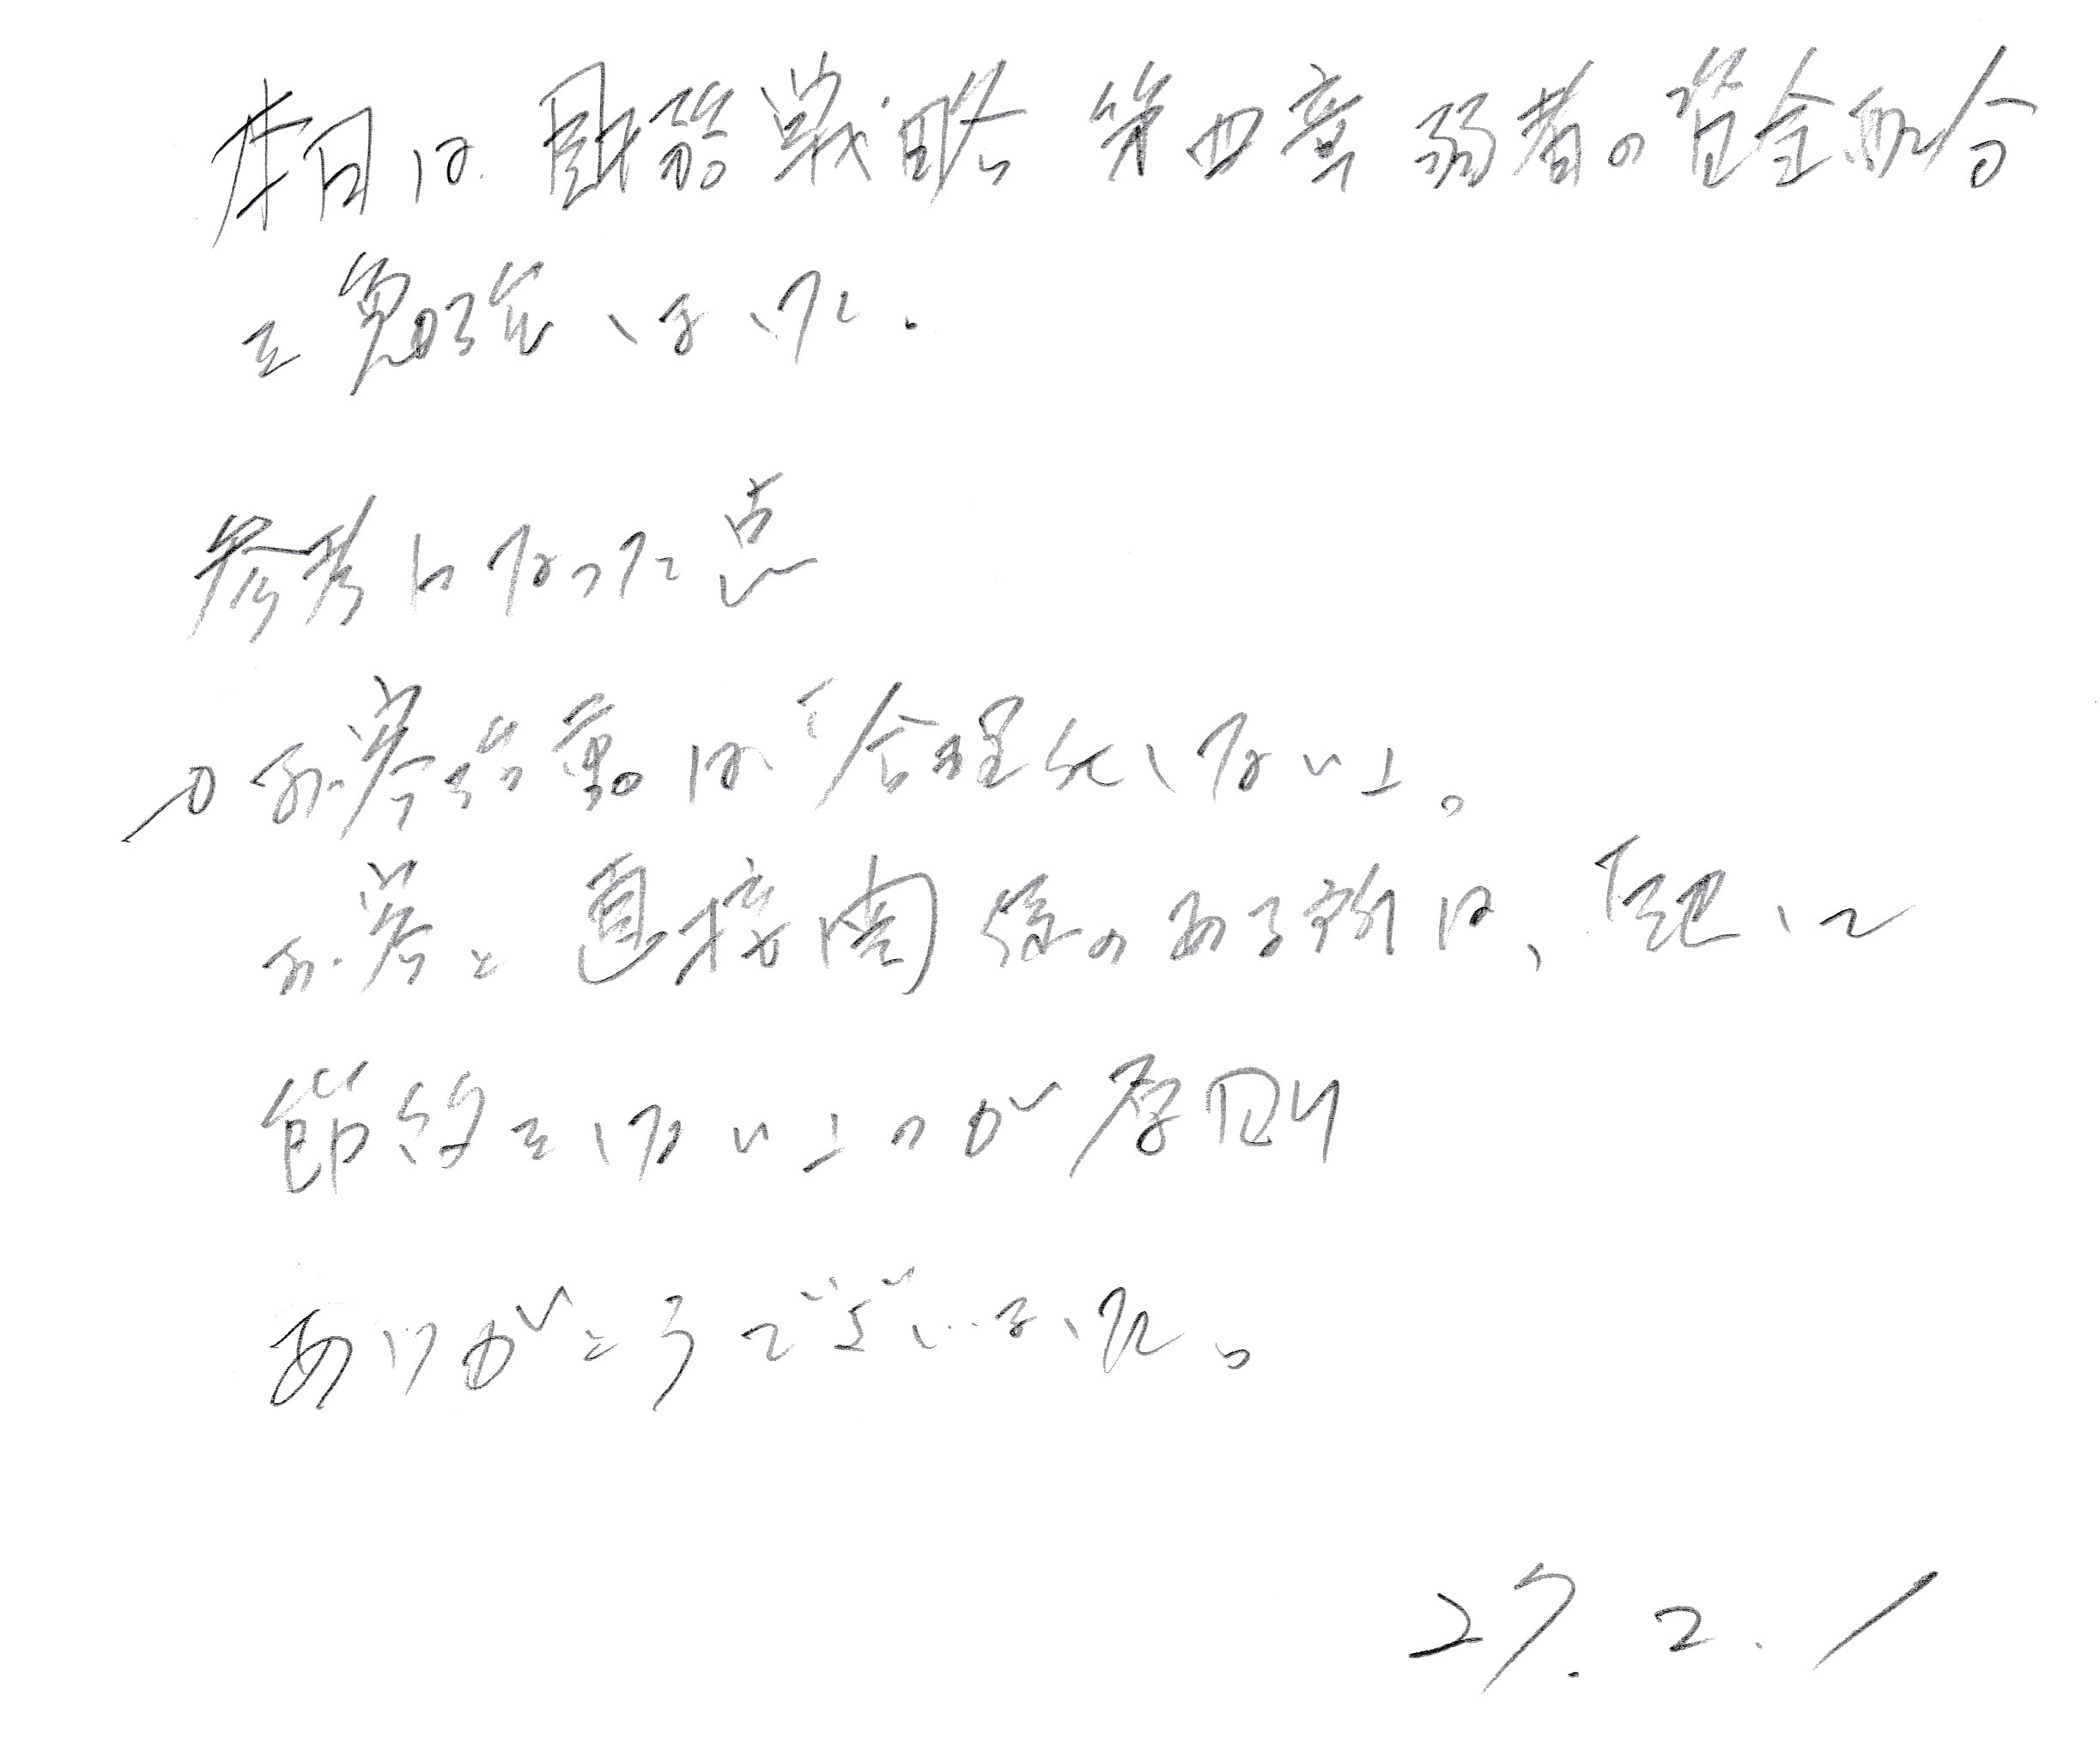 本日は 財務戦略 第四章 弱者の資金配分
を勉強しました.
参考になった点
① お客活動は合理化しない事。
お客と直接関係のある所は、下手に
節約をしない事が原則
ありがとうございました。
27. 2. 1